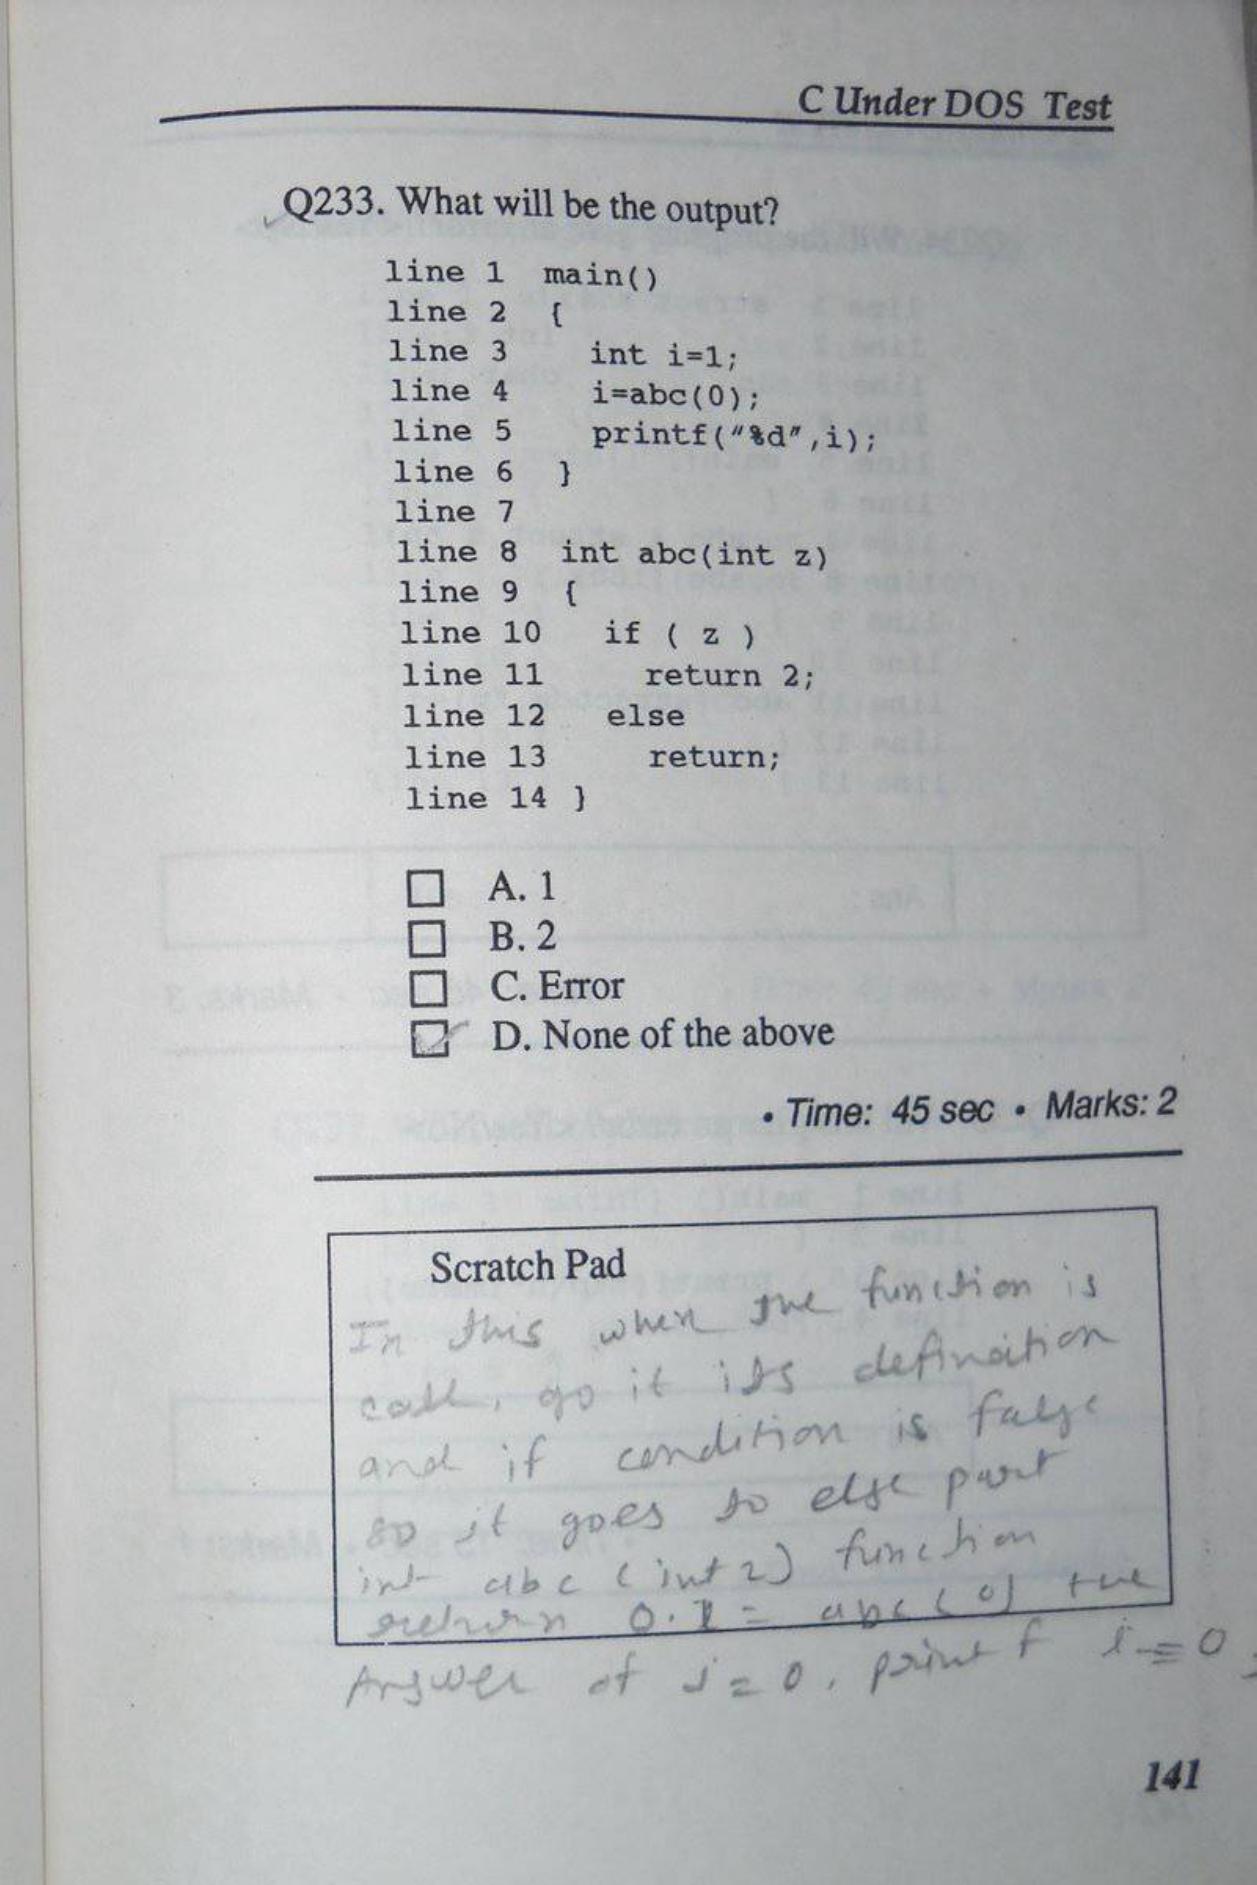 C Under DOS Test
Q233. What will be the output?
line 1 main()
line 2 {
line 3 int i=1;
line 4 i=abc(0);
line 5 printf("%d",i);
line 6 }
line 7
line 8 int abc(int z)
line 9 {
line 10 if ( z )
line 11 return 2;
line 12 else
line 13 return;
line 14 }
A. 1
B. 2
C. Error
D. None of the above
• Time: 45 sec • Marks: 2
Scratch Pad
In this when the function is
call, go it its defination
and if condition is false
so it goes to else part
int abc (int z) function
return 0. I = abc (0) the
Answer of i=0. printf i=0
141